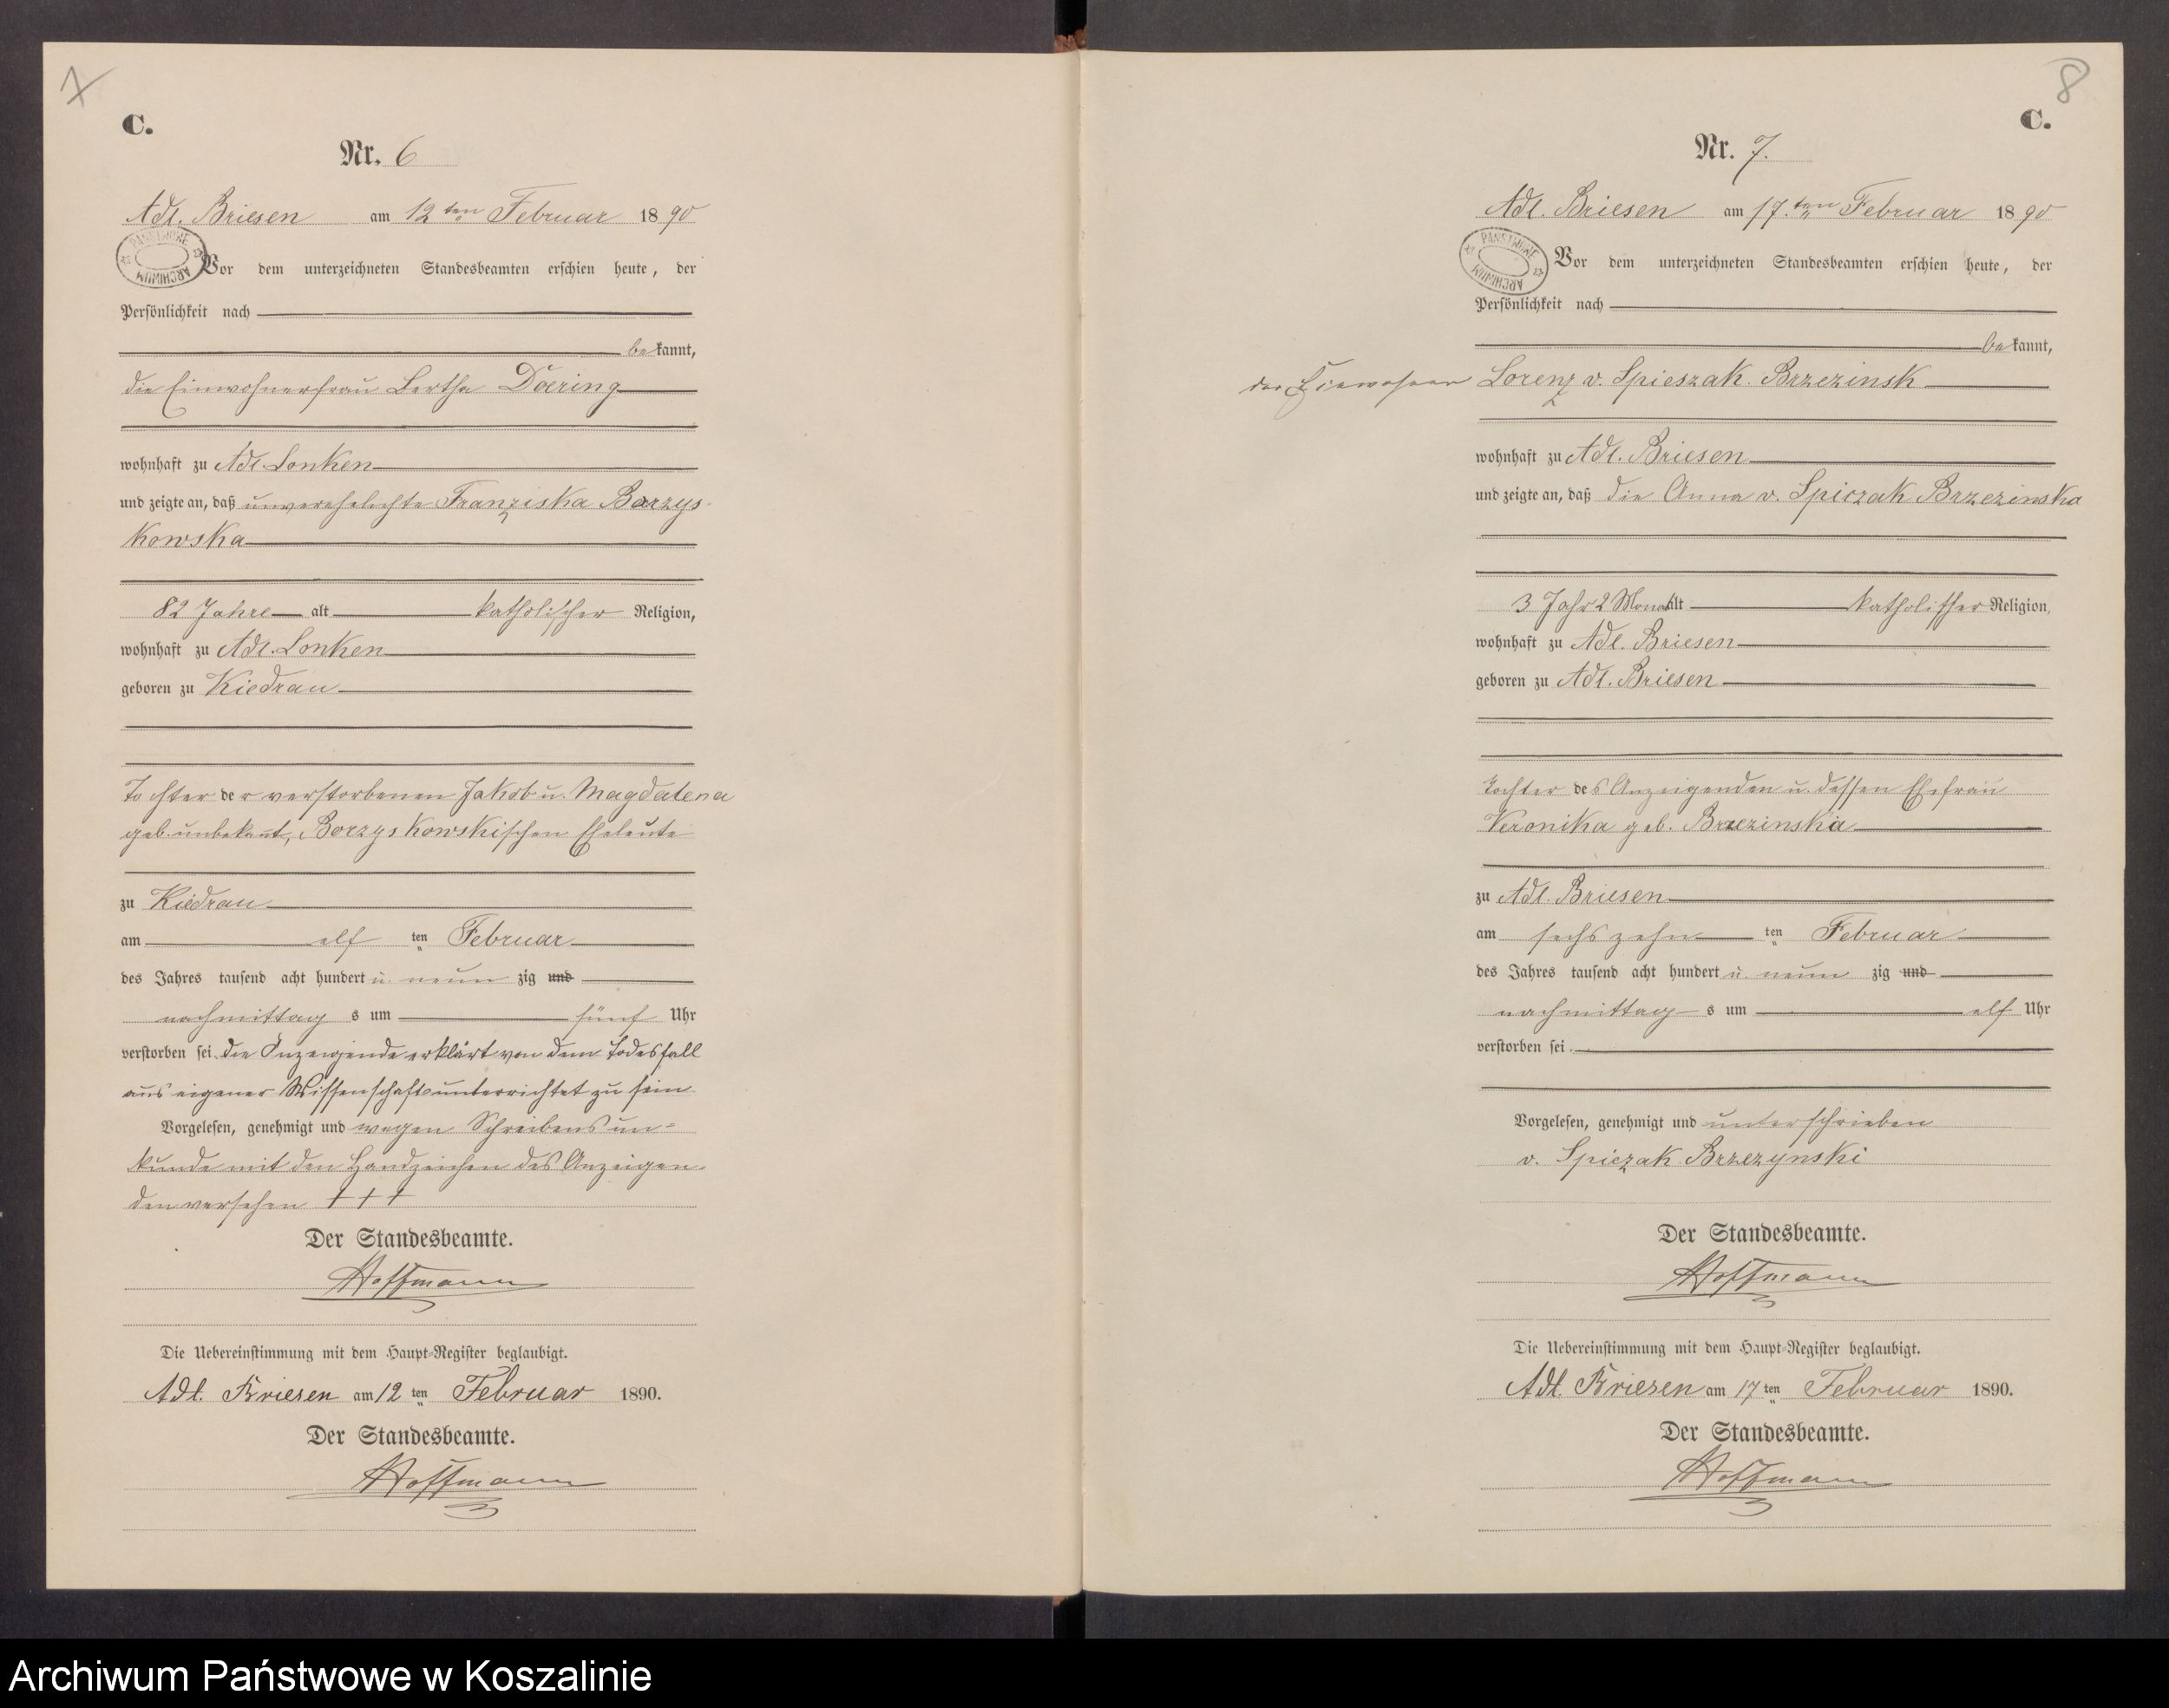 7
C.
Nr. 6
Adl. Briesen am 12ten Februar 1890
PAŃSTWOWE ARCHIWUM
Vor dem unterzeichneten Standesbeamten erschien heute, der
Persönlichkeit nach
bekannt,
die Einwohnerfrau Bertha Döering
wohnhaft zu Adl. Lonken
und zeigte an, daß unverehelichte Franziska Borzys-
kowska
82 Jahre alt katholischer Religion,
wohnhaft zu Adl. Lonken
geboren zu Kiedrau
Tochter der verstorbenen Jakob u. Magdalena
geb. unbekannt, Borzyskowskischen Eheleute
zu Kiedrau
am elf ten Februar
des Jahres tausend acht hundert u. neun zig und
nachmittag s um fünf Uhr
verstorben sei. Die Anzeigende erklärt von dem Todesfall
aus eigener Wissenschaft unterrichtet zu sein
Vorgelesen, genehmigt und wegen Schreibensun-
kunde mit den Handzeichen des Anzeigen-
den versehen + + +
Der Standesbeamte.
Hoffmann
Die Uebereinstimmung mit dem Haupt-Register beglaubigt.
Adl. Briesen am 12 ten Februar 1890.
Der Standesbeamte.
Hoffmann
8
C.
Nr. 7.
Adl. Briesen am 17.ten Februar 1890
PAŃSTWOWE ARCHIWUM
Vor dem unterzeichneten Standesbeamten erschien heute, der
Persönlichkeit nach
bekannt,
der Einwohner Lorenz v. Spieszak. Brzezinsk
wohnhaft zu Adl. Briesen
und zeigte an, daß die Anna v. Spiczak Brzezinska
3 Jahr 2 Monat alt katholischer Religion,
wohnhaft zu Adl. Briesen
geboren zu Adl. Briesen
Tochter des Anzeigenden u. dessen Ehefrau
Veronika geb. Brzezinska
zu Adl. Briesen
am sechszehn ten Februar
des Jahres tausend acht hundert u. neun zig und
nachmittag s um elf Uhr
verstorben sei.
Vorgelesen, genehmigt und unterschrieben
v. Spiczak Brzezynski
Der Standesbeamte.
Hoffmann
Die Uebereinstimmung mit dem Haupt-Register beglaubigt.
Adl. Briesen am 17 ten Februar 1890.
Der Standesbeamte.
Hoffmann
Archiwum Państwowe w Koszalinie